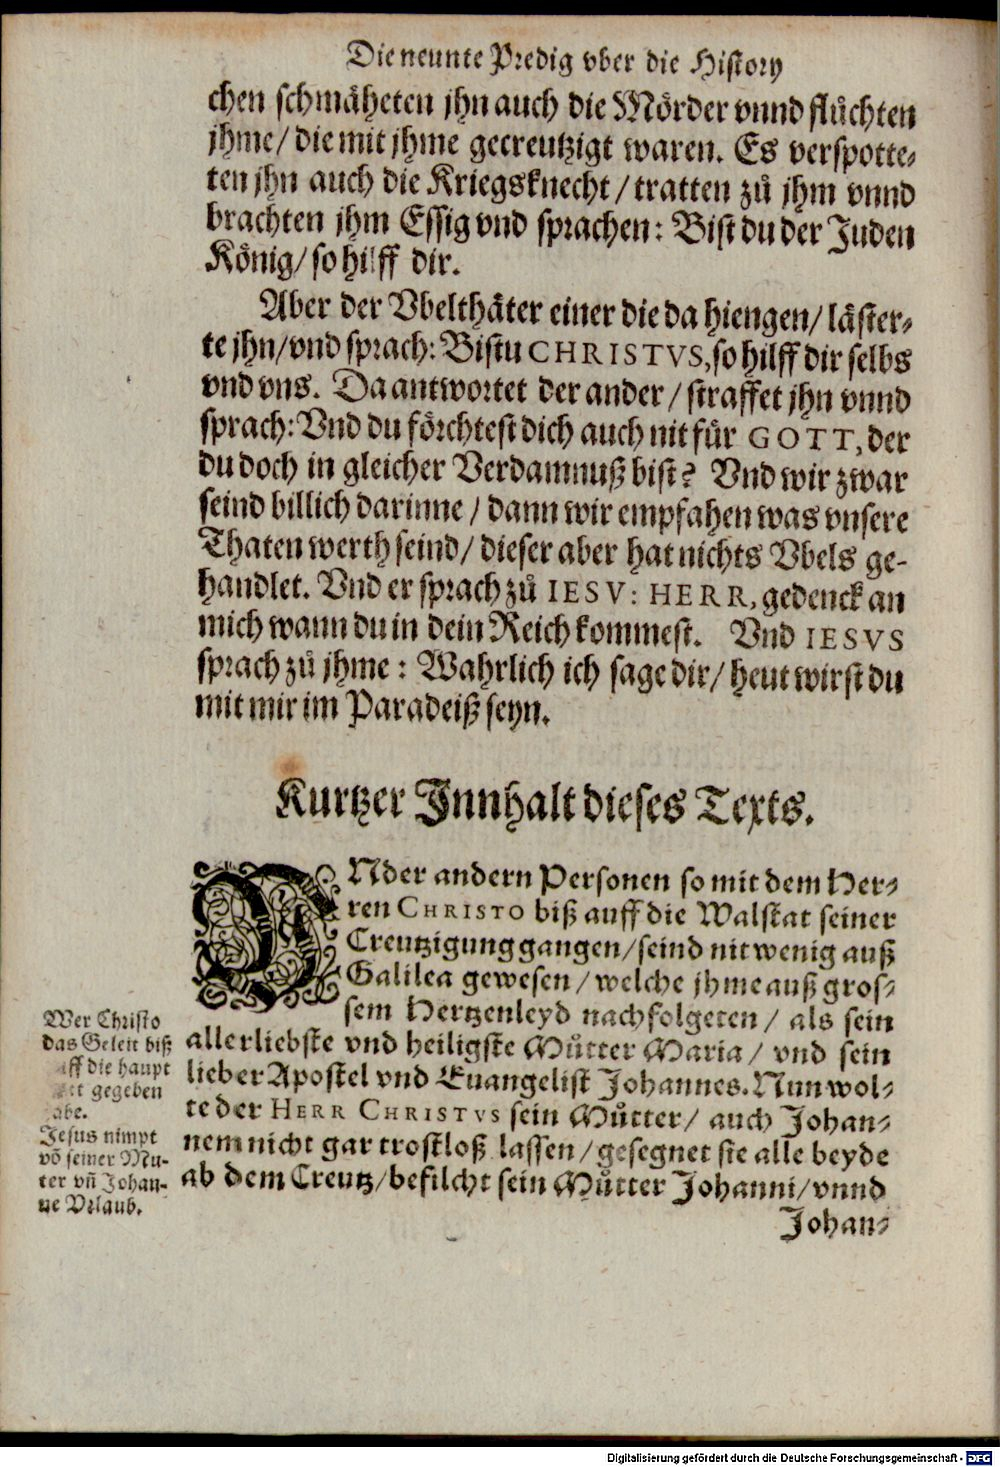 Die neunte Predig vber die History
chen schmäheten jhn auch die Mörder vnnd flůchten
jhme/ die mit jhme gecreutzigt waren. Es verspotte-
ten jhn auch die Kriegsknecht/ tratten zů jhm vnnd
brachten jhm Essig vnd sprachen: Bist du der Juden
König/ so hilff dir.
Aber der Vbelthäter einer die da hiengen/ läster-
te jhn/ vnd sprach: Bistu CHRISTVS, so hilff dir selbs
vnd vns. Da antwortet der ander/ straffet jhn vnnd
sprach: Vnd du förchtest dich auch nit für GOTT, der
du doch in gleicher Verdamnuß bist? Vnd wir zwar
seind billich darinne/ dann wir empfahen was vnsere
Thaten werth seind/ dieser aber hat nichts Vbels ge-
handlet. Vnd er sprach zů IESV: HERR, gedenck an
mich wann du in dein Reich kommest. Vnd IESVS
sprach zů jhme: Wahrlich ich sage dir/ heut wirst du
mit mir im Paradeiß seyn.
Kurtzer Innhalt dieses Texts.
VNder andern Personen so mit dem Her-
ren CHRISTO biß auff die Walstat seiner
Creutzigung gangen/ seind nit wenig auß
Galilea gewesen/ welche jhme auß gros-
sem Hertzenleyd nachfolgeten/ als sein
allerliebste vnd heiligste Můtter Maria/ vnd sein
lieber Apostel vnd Euangelist Johannes. Nun wol-
te der HERR CHRISTVS sein Můtter/ auch Johan-
nem nicht gar trostloß lassen/ gesegnet sie alle beyde
ab dem Creutz/ befilcht sein Můtter Johanni/ vnnd
Johan-
Wer Christo
das Geleit biß
auff die haupt
gegeben
habe.
Jesus nimpt
võ seiner Mu-
ter vñ Johan-
ne Vrlaub.
Digitalisierung gefördert durch die Deutsche Forschungsgemeinschaft - DFG